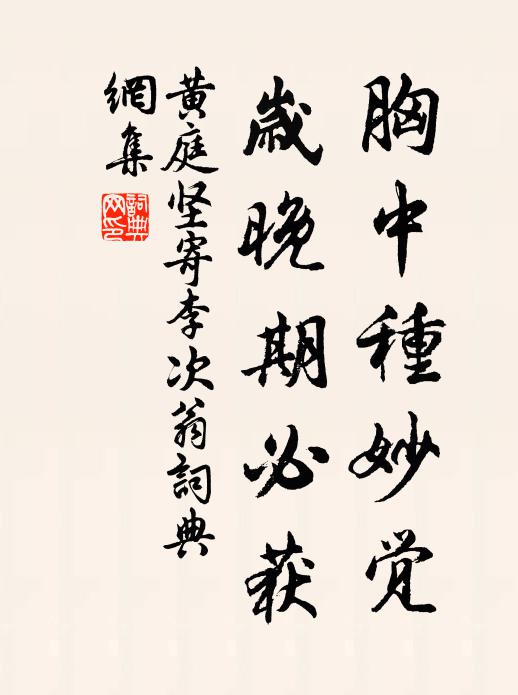 胸中種妙觉
歲晚期必获
黄庭坚寄李次翁詞典
網集
詞典网印